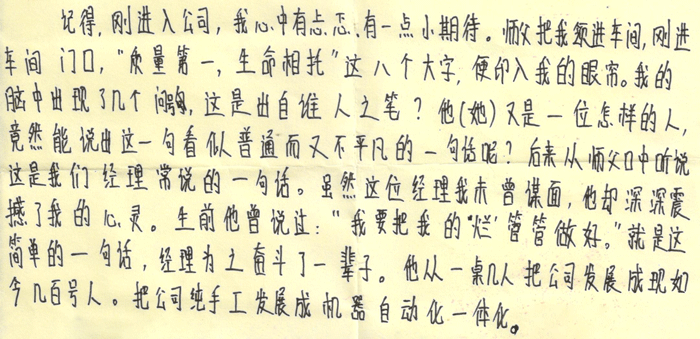 记得，刚进入公司，我心中有点忐忑，有一点小期待。师父把我领进车间，刚进
车间门口，“质量第一，生命相托”这八个大字，便印入我的眼帘。我的
脑中出现了几个问号，这是出自谁人之笔？他(她)又是一位怎样的人，
竟然能说出这一句看似普通而又不平凡的一句话呢？后来从师父口中听说
这是我们经理常说的一句话。虽然这位经理我未曾谋面，他却深深震
撼了我的心灵。生前他曾说过：“我要把我的‘烂’管管做好。”就是这
简单的一句话，经理为之奋斗了一辈子。他从一桌几人把公司发展成现如
今几百号人。把公司纯手工发展成机器自动化一体化。